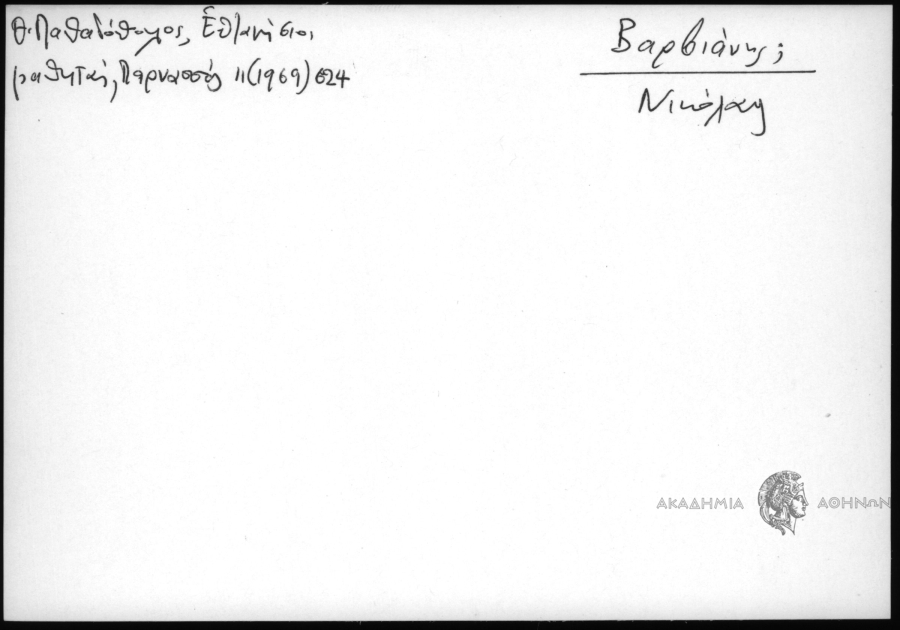 Θ. Παπαδόπουλος, Ἑπτανήσιοι
μαθηταί, Παρνασσός 11 (1969) 524
Βαρβιάνης;
Νικόλαος
ΑΚΑΔΗΜΙΑ ΑΘΗΝΩΝ